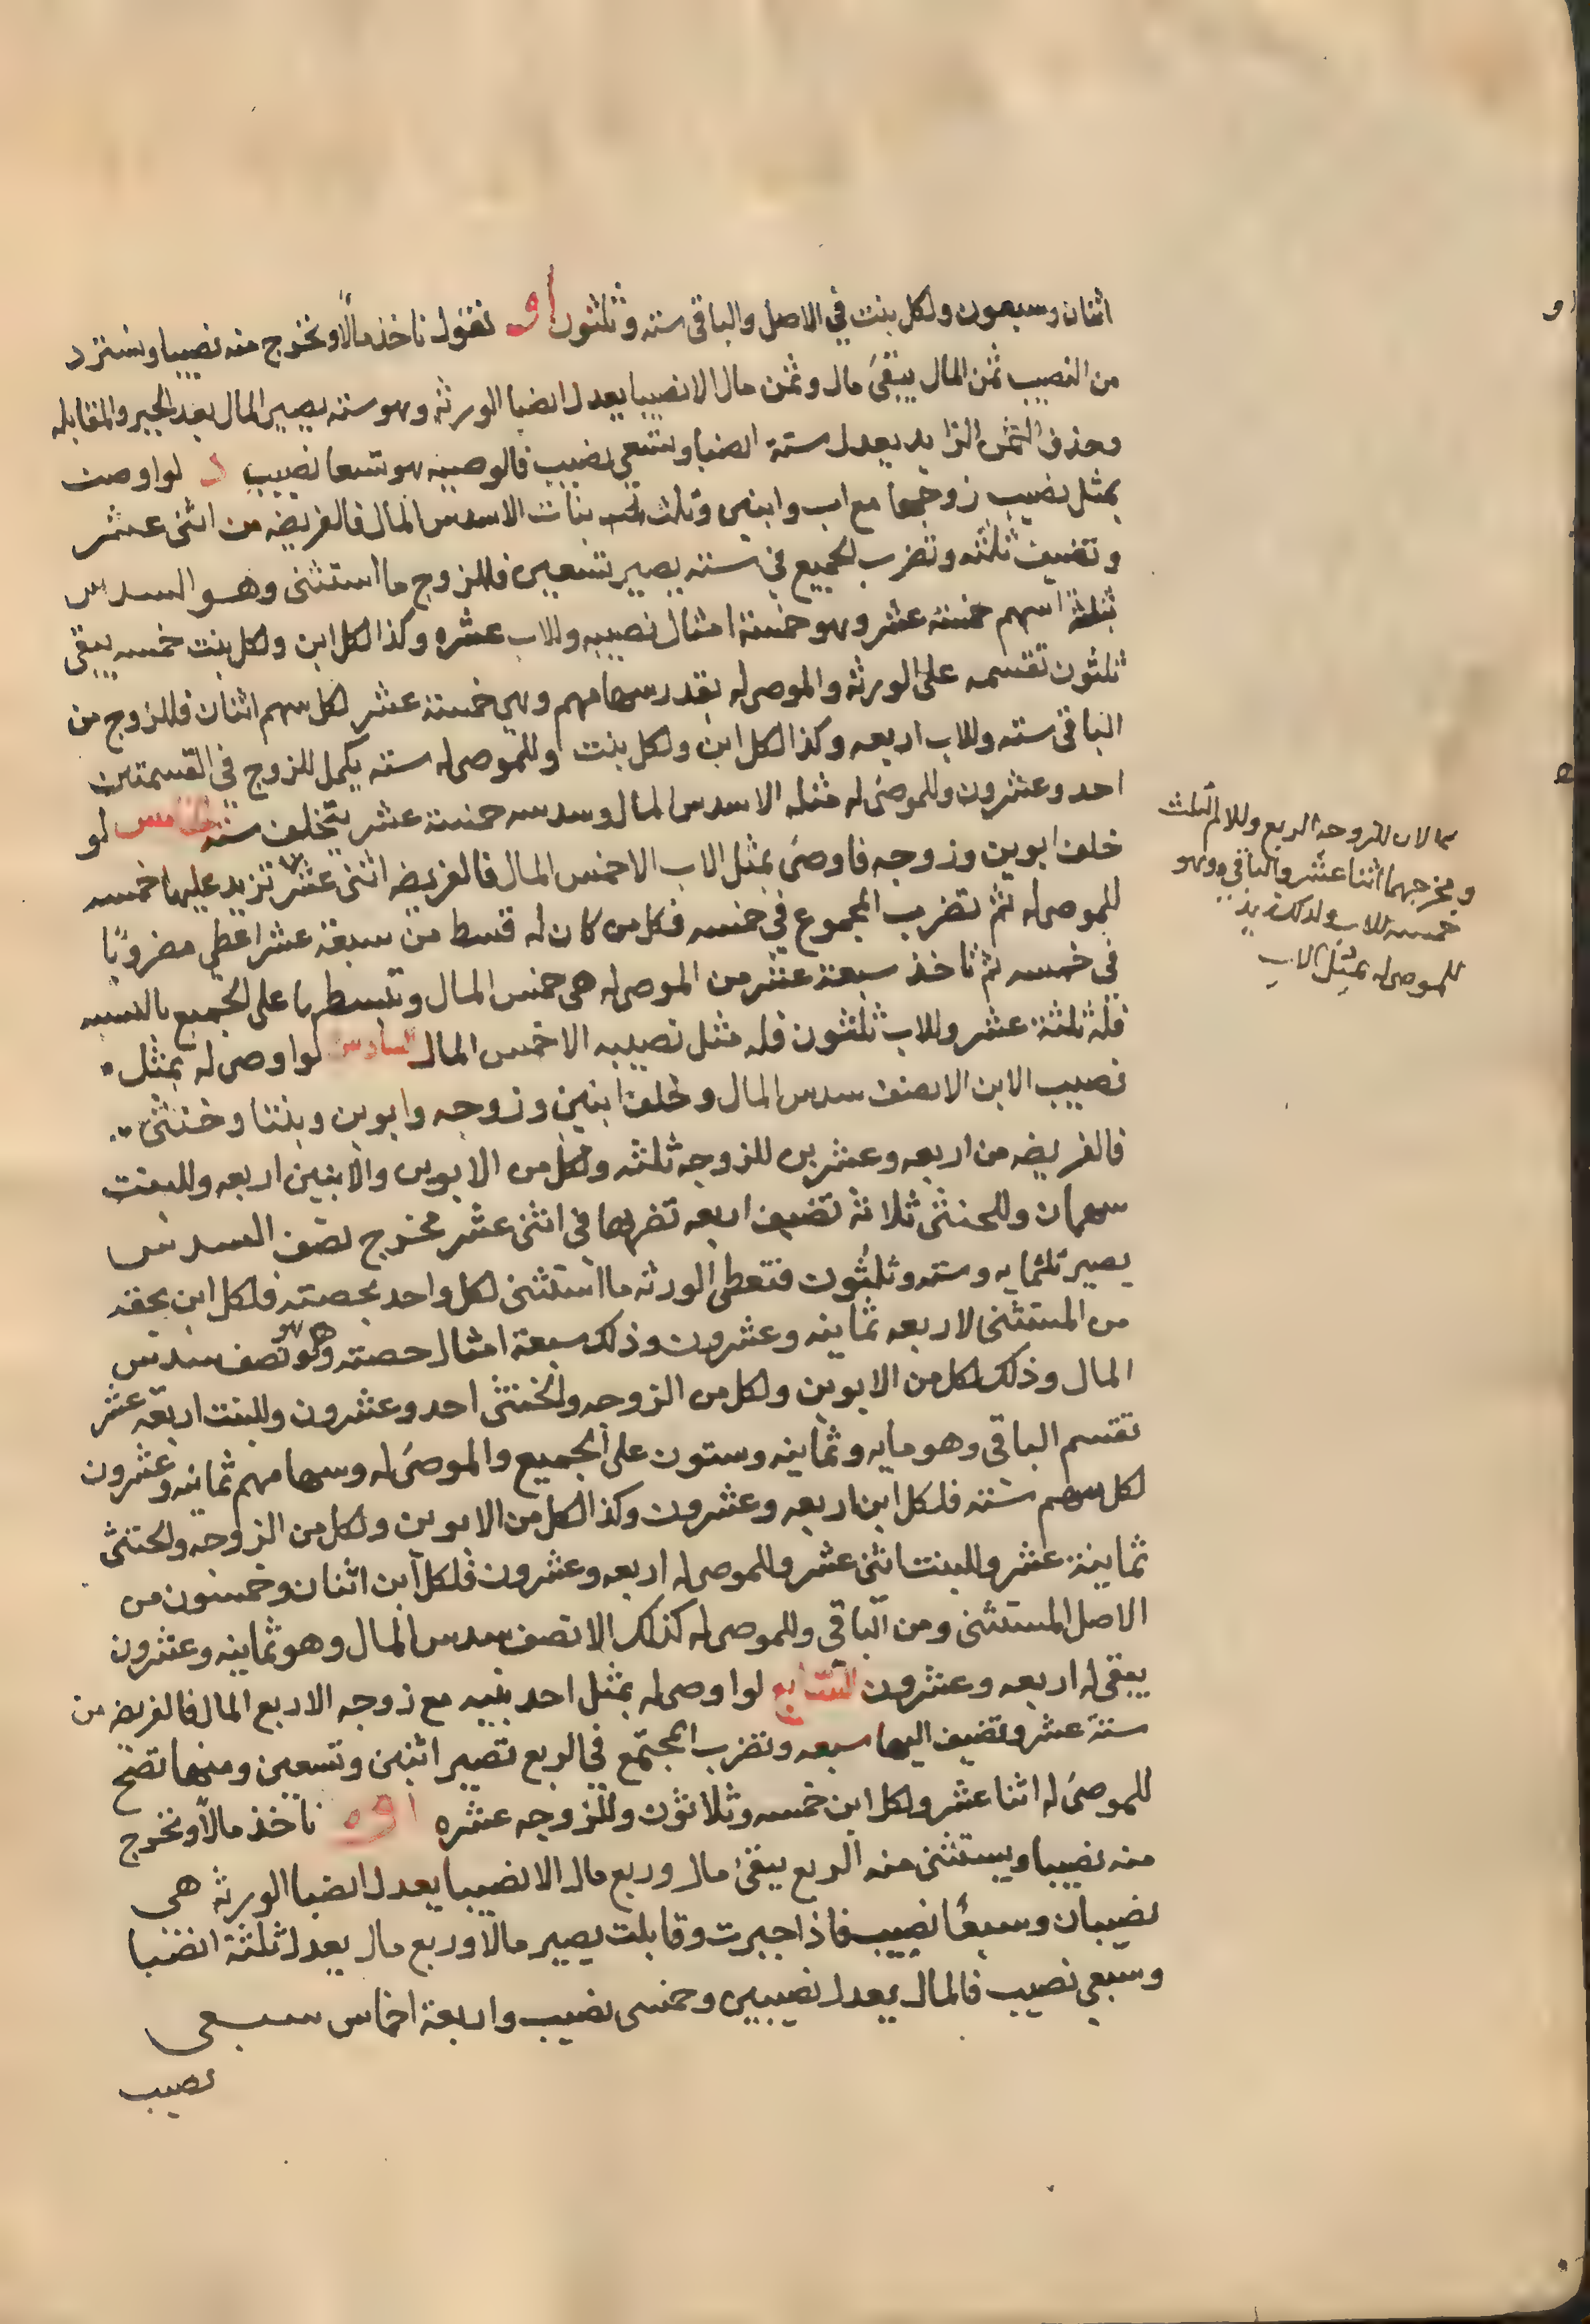 اثنان وسبعون ولكل بنت في الاصل والباقى سته وثلثون او نقول ناخذ مالا ونخرج منه نصيبا ونسترد
من النصيب ثمن المال يبقى مال وثمن مال الا نصيبا يعدل انصبا الورثة وهو سته يصير المال بعد الجبر والمقابله
وحذف الثمن الزايد يعدل ستة انصبا وتسعى نصيب فالوصيه هو تسعا نصيب د لو اوصت
بمثل نصيب زوجها مع اب وابنين وثلث بنات الا سدس المال فالفريضه من اثنى عشر
وتضيف ثلثه وتضرب الجميع في سته يصير تسعين فللزوج ما استثنى وهو السدس
بثلثة اسهم خمسة عشر وهو خمسة امثال نصيبه وللاب عشره وكذا لكل ابن ولكل بنت خمسه يبقى
ثلثون تقسمه على الورثة والموصى له بقدر سهامهم وهي خمسة عشر لكل سهم اثنان فللزوج من
الباقى سته وللاب اربعه وكذا لكل ابن ولكل بنت وللموصى له سته يكمل للزوج في القسمتين
احد وعشرون وللموصى له مثله الا سدس المال وسدسه خمسة عشر يتخلف سته الخامس لو
خلف ابوين وزوجه فاوصى بمثل الاب الا خمس المال فالفريضه اثنى عشر تزيد عليها خمسه
للموصى له ثم تضرب المجموع في خمسه فكل من كان له قسط من سبعة عشر اعطي مضروبا
في خمسه ثم ناخذ سبعة عشر من الموصى له هى خمس المال وتبسطها على الجميع بالنسبه
فله ثلثة عشر وللاب ثلثون فله مثل نصيبه الا خمس المال السادس لو اوصى له بمثل
نصيب الابن الا نصف سدس المال وخلف ابنين وزوجه وابوين وبنتا وخنثى
فالفريضه من اربعه وعشرين للزوجه ثلثه ولكل من الابوين والابنين اربعه وللبنت
سهمان وللخنثى ثلاثة تضيف اربعه تضربها في اثنى عشر مخرج نصف السدس
يصير ثلثمايه وسته وثلثون فتعطى الورثه ما استثنى لكل واحد بحصته فلكل ابن بحقه
من المستثنى لاربعه ثمانيه وعشرون وذلك سبعة امثال حصته وهو نصف سدس
المال وذلك لكل من الابوين ولكل من الزوجه والخنثى احد وعشرون وللبنت اربعة عشر
تقسم الباقى وهو مايه وثمانيه وستون على الجميع والموصى له وسهامهم ثمانيه وعشرون
لكل سهم سته فلكل ابن اربعه وعشرون وكذا لكل من الابوين ولكل من الزوجه والخنثى
ثمانية عشر وللبنت اثنى عشر وللموصى له اربعه وعشرون فلكل ابن اثنان وخمسون من
الاصل المستثنى ومن الباقي وللموصى له كذلك الا نصف سدس المال وهو ثمانيه وعشرون
يبقى له اربعه وعشرون السابع لو اوصى له بمثل احد بنيه مع زوجه الا ربع المال فالفريضه من
ستة عشر وتضيف اليها سبعه وتضرب المجتمع في الربع تصير اثنين وتسعين ومنها تصح
للموصى له اثنا عشر ولكل ابن خمسه وثلاثون وللزوجه عشره او ناخذ مالا ونخرج
منه نصيبا ويستثنى منه الربع يبقى مال وربع مال الا نصيبا يعدل انصبا الورثة هى
نصيبان وسبعا نصيب فاذا جبرت وقابلت يصير مالا وربع مال يعدل ثلثة انصبا
وسبعى نصيب فالمال يعدل نصيبين وخمسى نصيب واربعة اخماس سبعى
نصيب
لان للزوجه الربع وللام الثلث
ومخرجهما اثنا عشر والباقى وهو
خمسه للاب ولذلك يزيد
للموصى له بمثل الاب